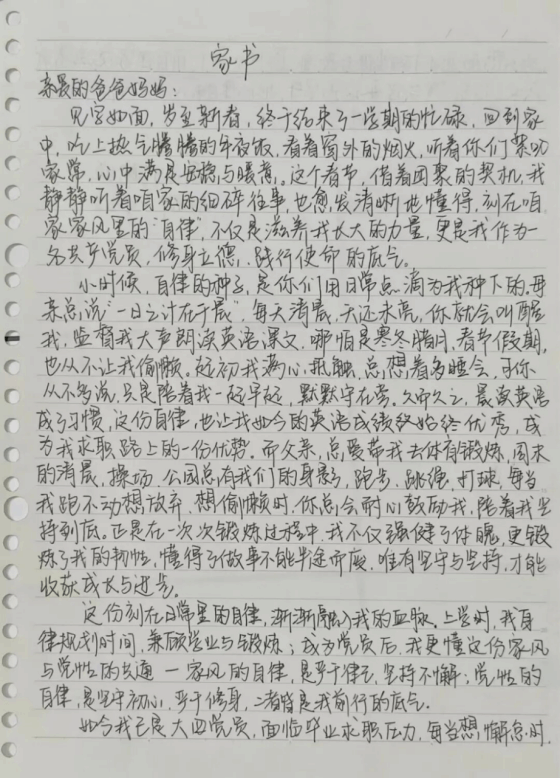 家书
亲爱的爸爸妈妈：
见字如面，岁至新春，终于结束了一学期的忙碌，回到家
中，吃上热气腾腾的年夜饭，看着窗外的烟火，听着你们絮叨
家常，心中满是安稳与暖意。这个春节，借着团聚的契机，我
静静听着咱家的细碎往事，也愈发清晰地懂得，刻在咱
家家风里的“自律”，不仅是滋养我长大的力量，更是我作为一
名共产党员，修身立德、践行使命的底气。
小时候，自律的种子，是你们用日常点滴为我种下的。母
亲总说“一日之计在于晨”，每天清晨，天还未亮，你就会叫醒
我，监督我大声朗读英语课文，哪怕是寒冬腊月、春节假期，
也从不让我偷懒。起初我满心抵触，总想着多睡会，可你
从不多说，只是陪着我一起早起，默默守在旁。久而久之，晨读英语
成了习惯，这份自律，也让我如今的英语成绩终始终优秀，成
为我求职路上的一份优势。而父亲，总爱带我去体育锻炼，周末
的清晨，操场、公园总有我们的身影，跑步、跳绳、打球，每当
我跑不动想放弃、想偷懒时，你总会耐心鼓励我，陪着我坚
持到底。正是在一次次锻炼过程中，我不仅强健了体魄，更锻
炼了我的韧性，懂得了做事不能半途而废，唯有坚守与坚持，才能
收获成长与进步。
这份刻在日常里的自律，渐渐融入我的血脉。上学时，我自
律规划时间，兼顾学业与锻炼；成为党员后，我更懂这份家风
与党性的共通——家风的自律，是严于律己、坚持不懈；党性的
自律，是坚守初心、严于修身，二者皆是我前行的底气。
如今我已是大四党员，面临毕业求职压力，每当想懈怠时，